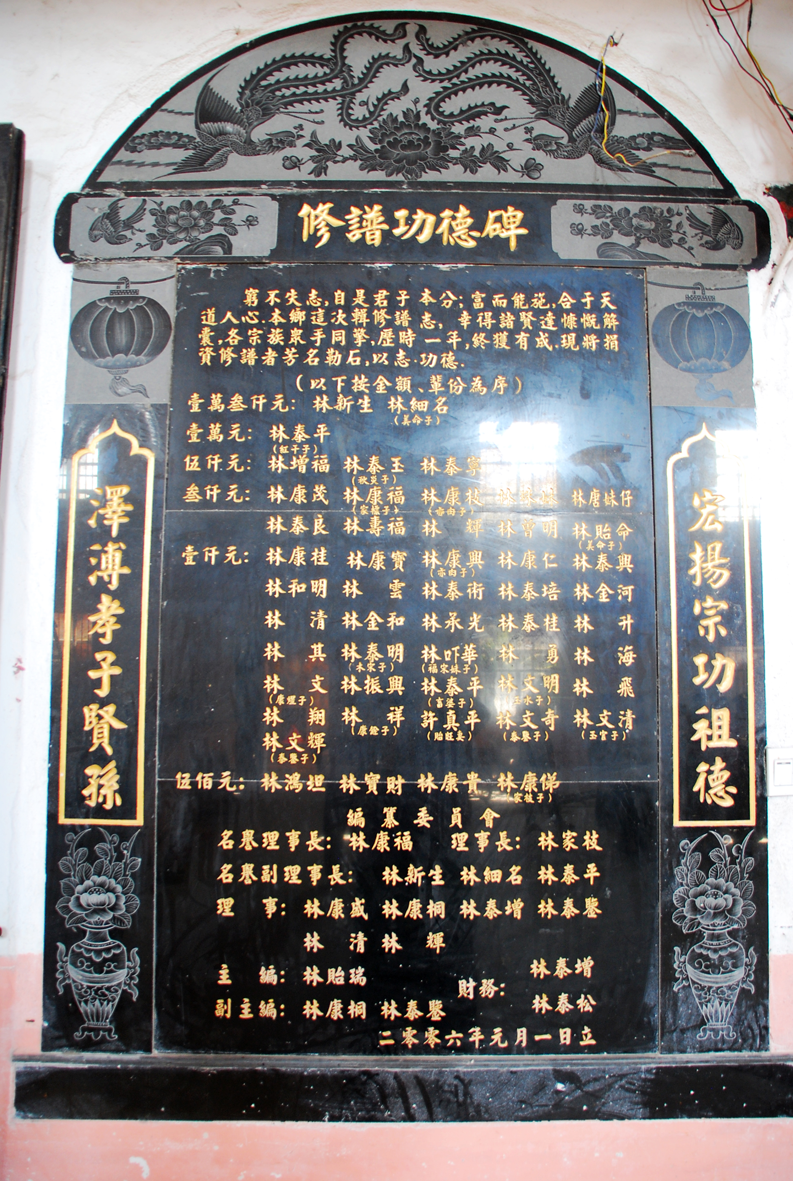 修譜功德碑
窮不失志,自是君子本分;富而能施,合于天
道人心.本鄉這次輯修譜志,幸得諸賢達慷慨解
囊,各宗族衆手同擎,歷時一年,終獲有成.現將捐
資修譜者芳名勒石,以志功德.
(以下按金額、輩份為序)
壹萬叁仟元: 林新生 林細名
(美命子)
壹萬元: 林泰平
(紅干子)
伍仟元: 林增福 林泰玉 林泰寧
叁仟元: 林康茂 林康福 林康枝 林唐妹仔
林泰良 林壽福 林 輝 林曾明 林貽命
(美命子)
壹仟元: 林康桂 林康寶 林康興 林康仁 林泰興
(亦向子)
林和明 林 雲 林泰術 林泰培 林金河
林 清 林金和 林承光 林泰桂 林 升
林 其 林泰明 林吓華 林 勇 林 海
(本宋子) (福宋妹子)
林 文 林振興 林泰平 林文明 林 飛
(康煌子) (言婆子) (玉水子)
林 翔 林 祥 許真平 林文奇 林文清
(康鏗子) (貽旺妻) (泰鑒子) (玉官子)
林文輝
(泰鑒子)
伍佰元: 林鴻坦 林寶財 林康貴 林康俤
編纂委員會
名譽理事長: 林康福 理事長: 林家枝
名譽副理事長: 林新生 林細名 林泰平
理 事: 林康盛 林康桐 林泰增 林泰鑒
林 清 林 輝
主 編: 林貽瑞 財務: 林泰增
副主編: 林康桐 林泰鑒 林泰松
二零零六年元月一日立
宏揚宗功祖德
澤溥孝子賢孫